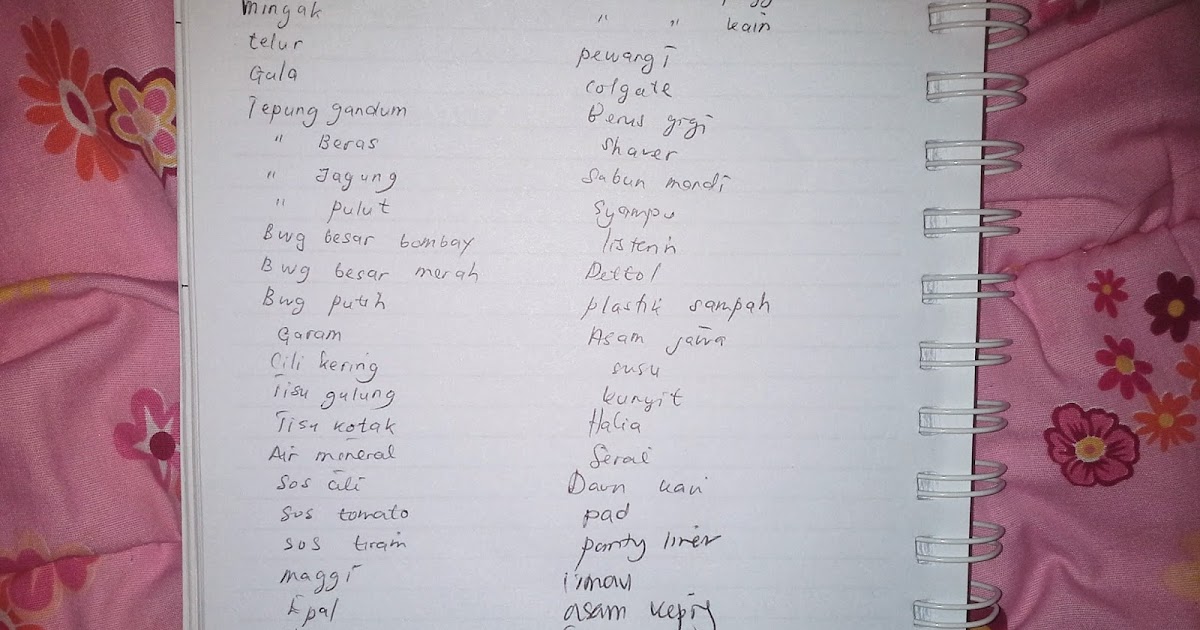 mingak
telur
Gula
Tepung gandum
" Beras
" Jagung
" pulut
Bwg besar bombay
Bwg besar merah
Bwg putih
Garam
Cili kering
Tisu gulung
Tisu kotak
Air mineral
Sos cili
Sos tomato
Sos tiram
maggi
Epal
" " kain
pewangi
colgate
Berus gigi
shaver
Sabun mandi
Syampu
listerin
Dettol
plastik sampah
Asam jawa
susu
kunyit
Halia
Serai
Daun kari
pad
panty liner
limau
asam keping